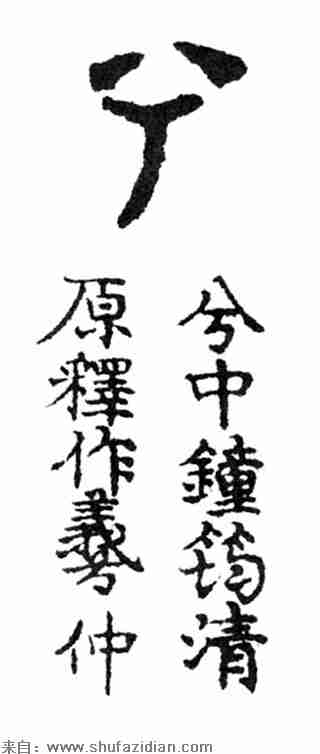 兮
兮中鐘筠清
原釋作羲仲
来自：www.shufazidian.com